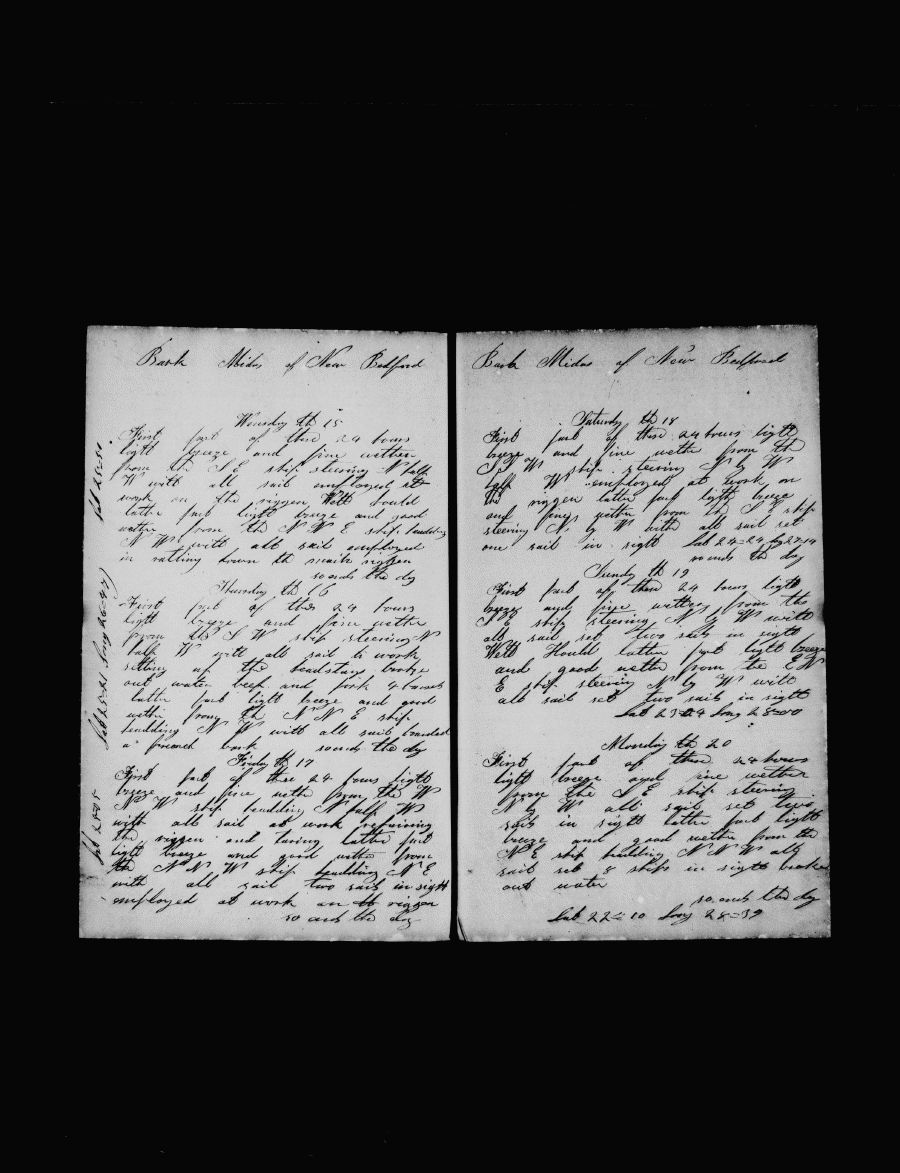 Bark Midas of New Bedford
Wensday th 15
First part of these 24 hours
light breeze and fine wether
from the S E ship steering N half
W with all sail employed at
work on the riggen Well
latter part light breeze and good
wether from the N N E ship heudding
N W with all sail employed
in ratling down th main riggen
so ends the dy
Thursday th 16
First part of thes 24 hours
light breeze and fine wether
from the S W ship steering N
half W with all sail to work
setting up the headstays broke
out water beef and pork 4
latter part light breeze and good
wether from th N N E ship
heudding N W with all sail
a bark so ends the dy
Friday th 17
First part of these 24 hours light
breeze and fine weth from the W
N W ship heudding N half W
with all sail at work repairing
the riggen and taring latter part
light breeze and good wether from
the N N W ship heudding N E
with all sail two sail in sight
employed at work on th riggen
so ends the dy
Lat 25-51
Lat 25-21 Long 26-47
Lat
Bark Midas of New Bedford
Saturdy th 18
First part of these 24 hours light
breeze and fine wether from the
S W ship steering N by W
half W employed at work on
the riggen latter part light breeze
and fine wether from the S E ship
steering N by W with all sail set
one sail in sight Lat 24=24 27-14
so ends the day
Sundy th 19
First part of these 24 hours light
breeze and fine wether from the
S E ship steering N by W with
all sail set two sails in sight
Well latter part light breeze
and good wether from the E N
E ship steering N by W with
all sail set two sail in sight
Lat 23=04 Long 28=00
Monday th 20
First part of these 24 hours
light breeze and fine wether
from the S E ship steering
N by W all sail set two
sails in sight latter part light
breeze and good wether from the
N E ship heudding N N W all
sail set 8 ships in sight broke
out water
so ends the day
Lat 22=10 Long 28=39